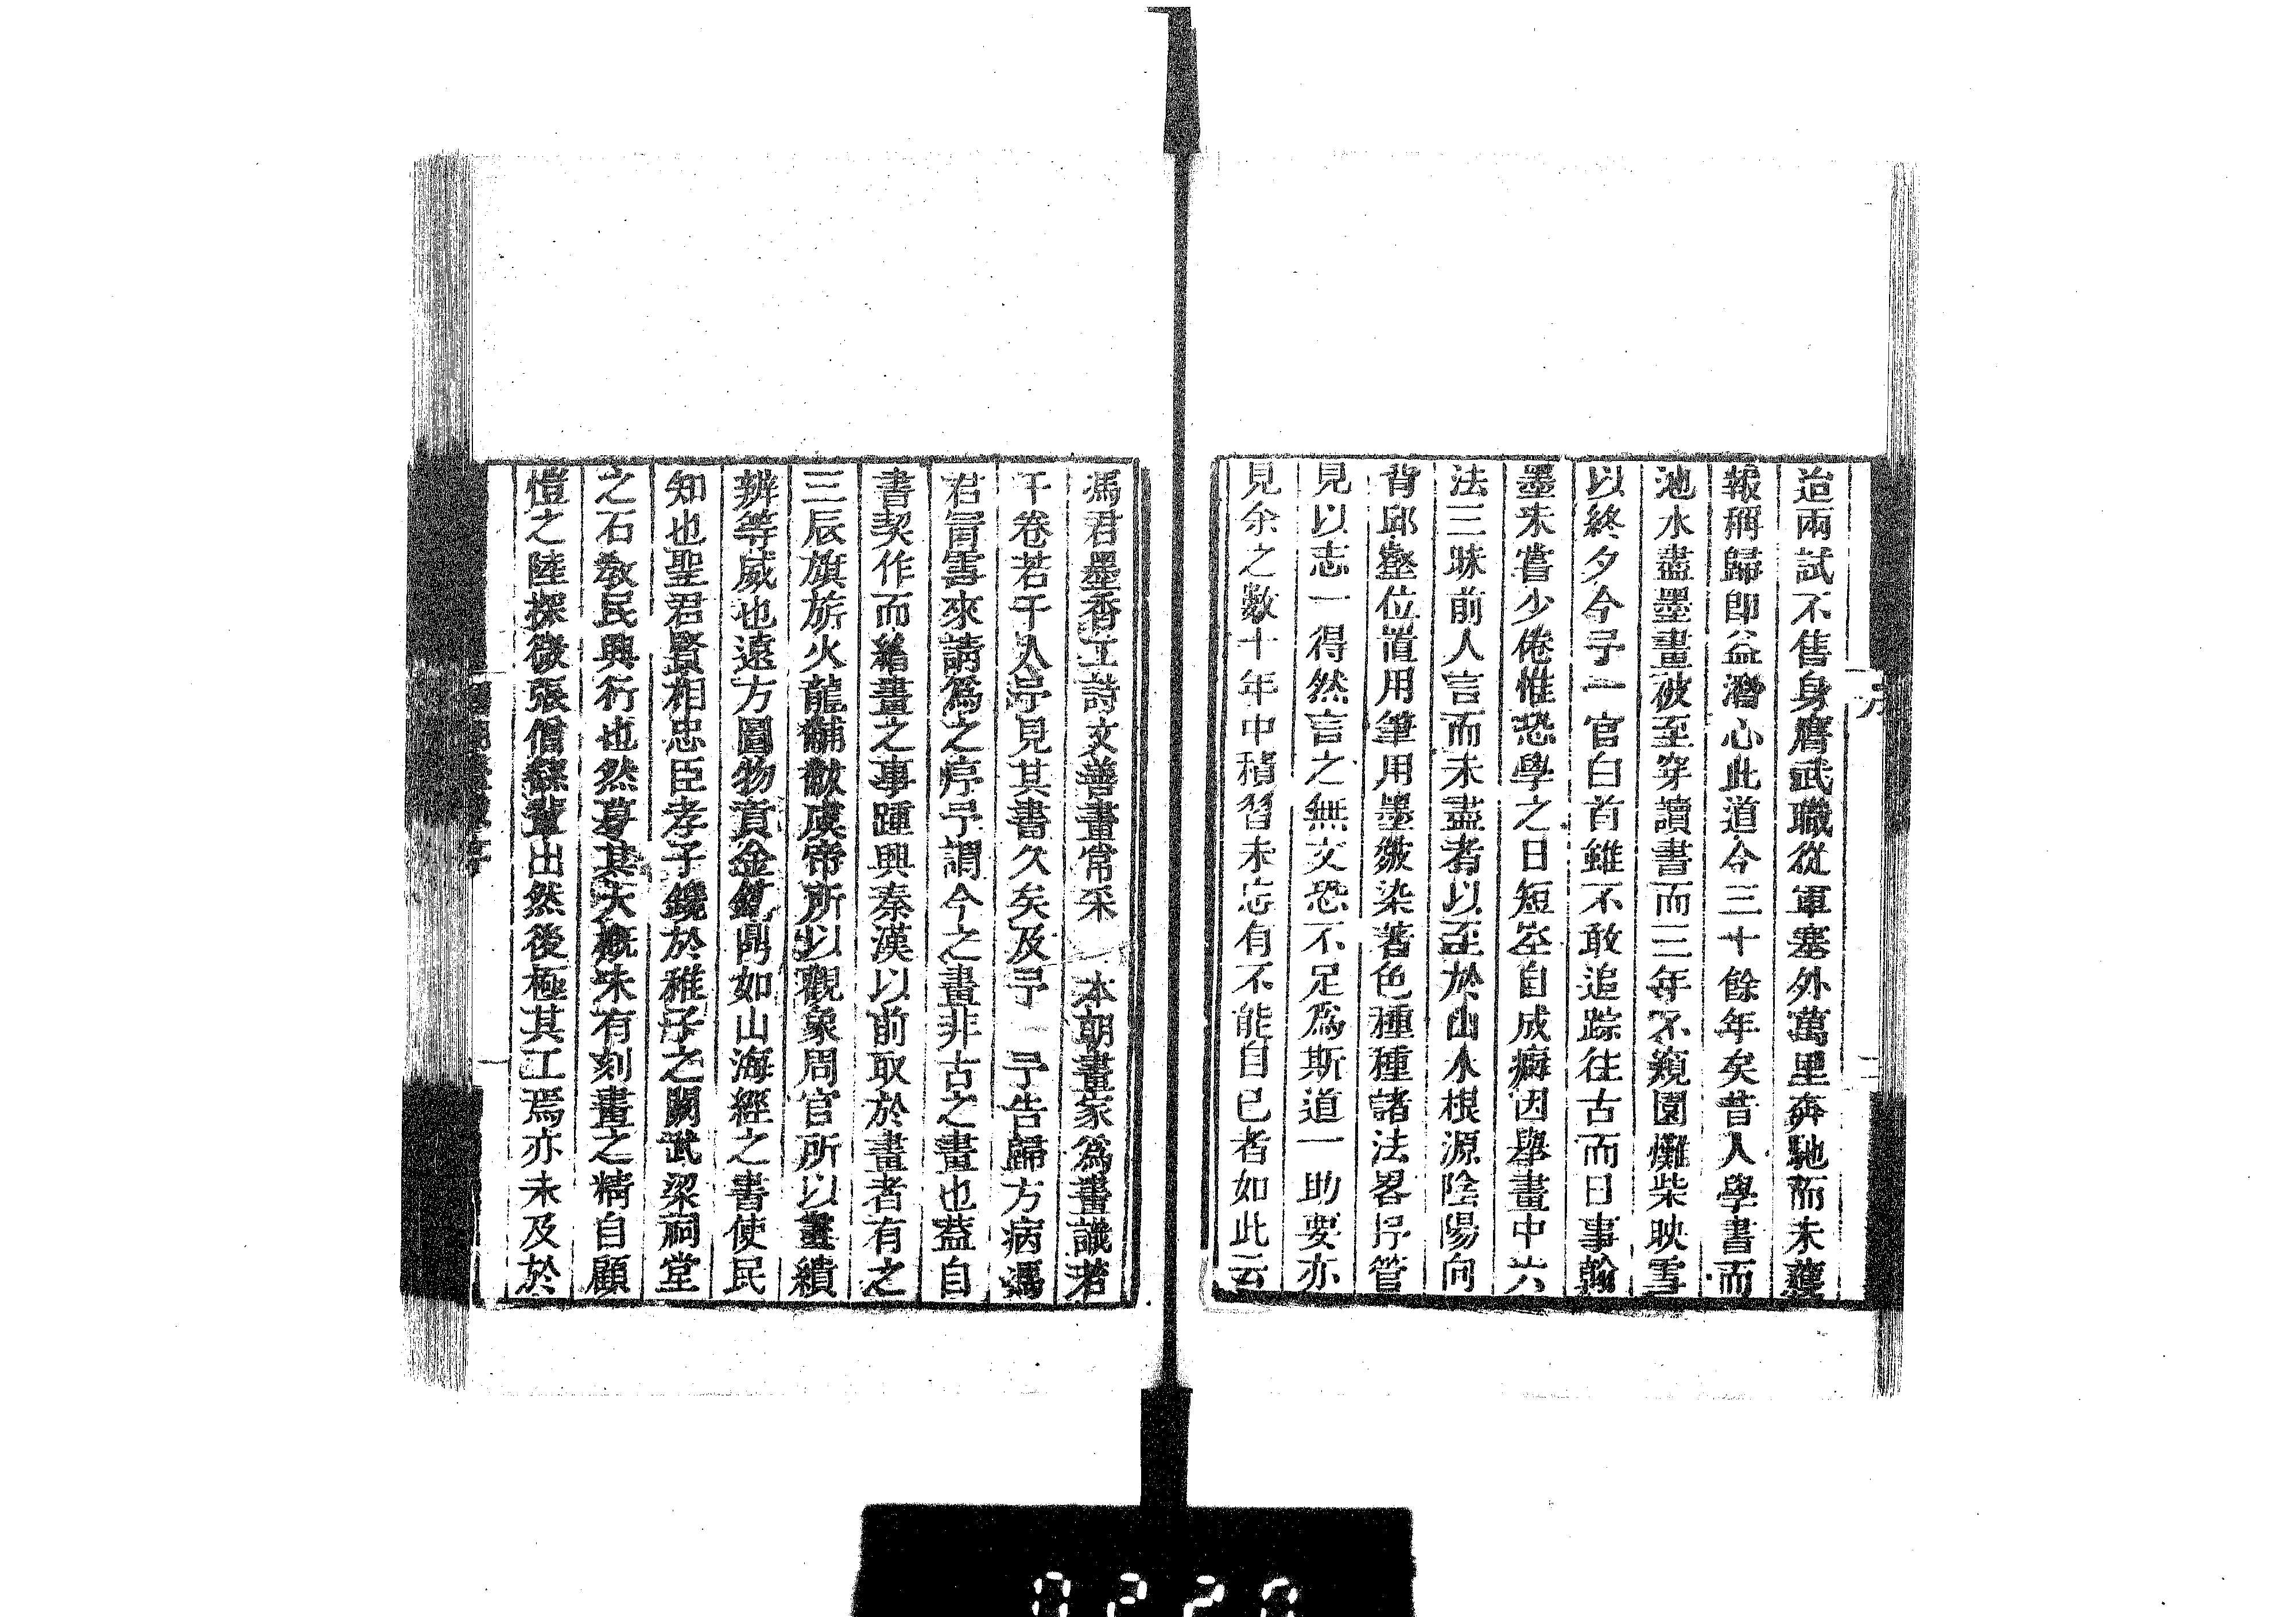 迨兩試不售身膺武職從軍塞外萬里奔馳而未蘧
報稱歸卽益潛心此道今三十餘年矣昔人學書而
池水盡墨畫被至穿讀書而三年不窺園爇柴映雪
以終夕今予一官白首雖不敢追踪往古而日事翰
墨未嘗少倦惟恐學之日短並自成癖因舉畫中六
法三昧前人言而未盡者以至於山水根源陰陽向
背邱壑位置用筆用墨皴染著色種種諸法畧抒管
見以志一得然言之無文恐不足爲斯道一助要亦
見余之數十年中積習未忘有不能自已者如此云
序
二
馮君墨香工詩文善畫常采 本朝畫家爲畫識若
干卷若干人予見其書久矣及予 予告歸方病馮
君冐雪來請爲之序予謂今之畫非古之畫也蓋自
書契作而繪畫之事踵興秦漢以前取於畫者有之
三辰旗旂火龍黼黻虞帝所以觀象周官所以畫繢
辨等威也遠方圖物貢金鑄鼎如山海經之書使民
知也聖君賢相忠臣孝子鑱於稚子之闕武梁祠堂
之石敎民興行也然摹其大槪未有刻畫之精自顧
愷之陸探微張僧繇輩出然後極其工焉亦未及於
一